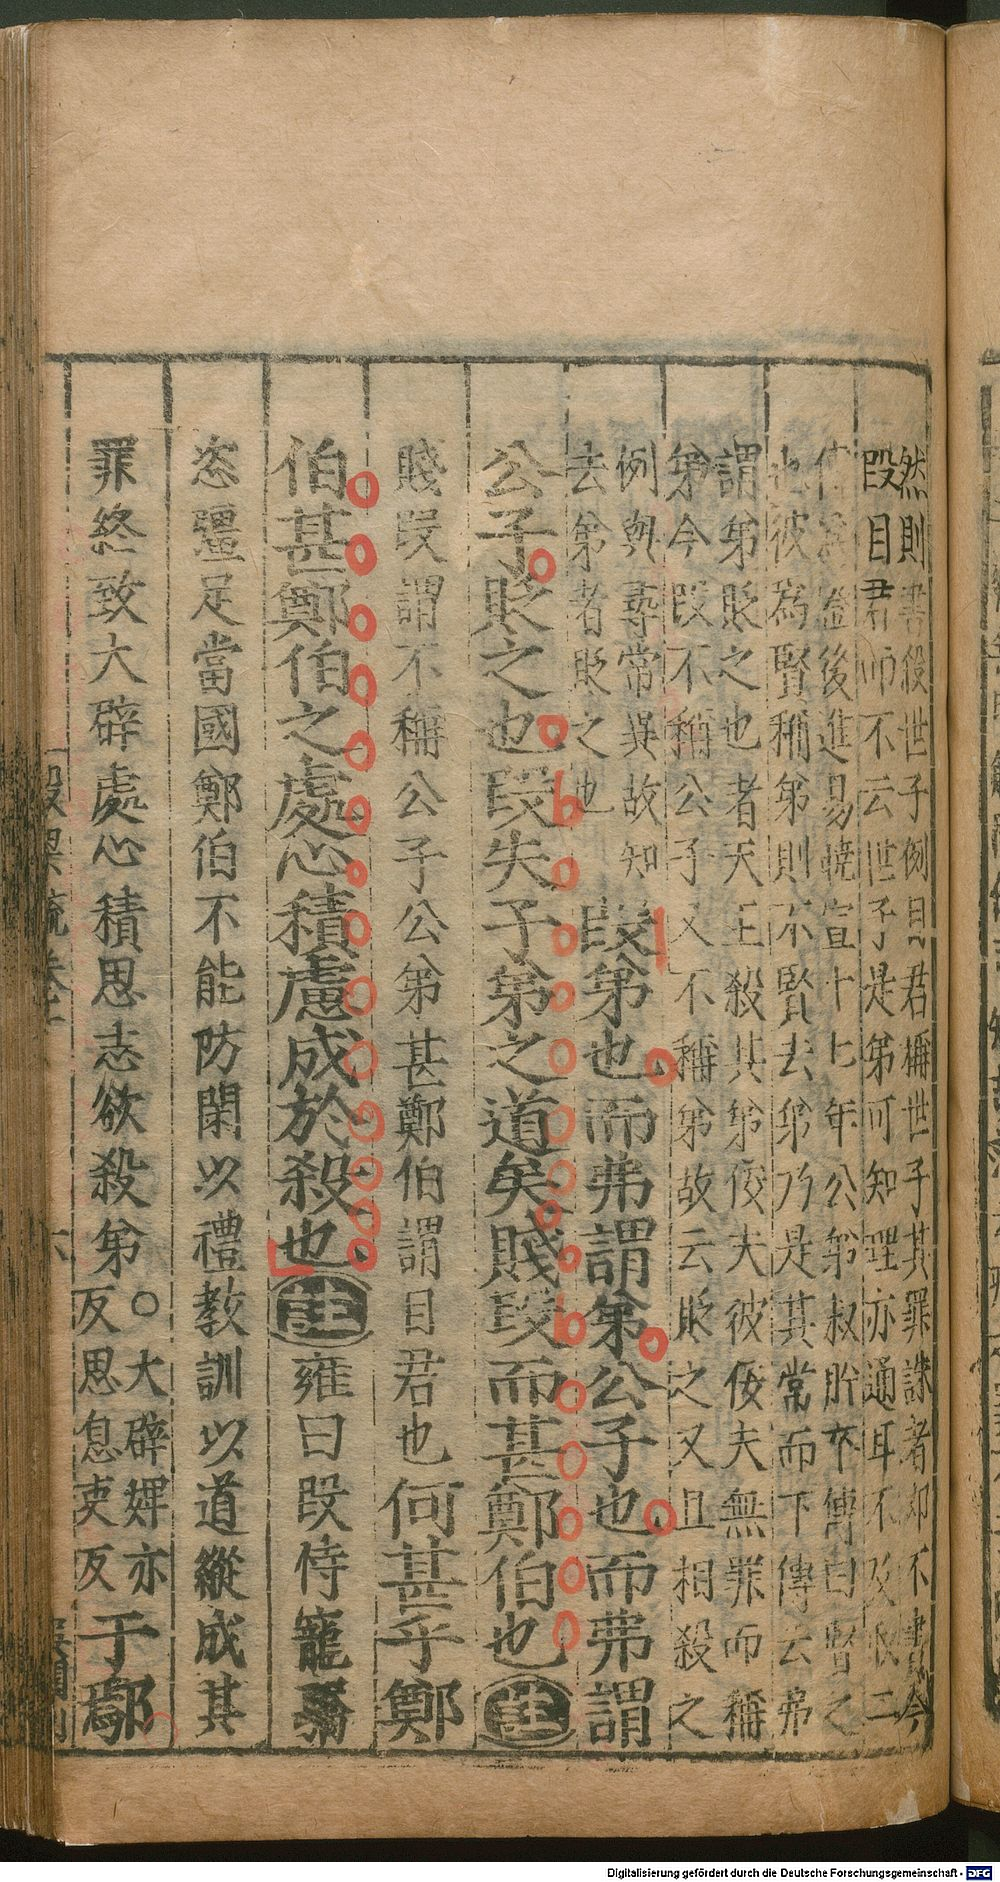 然則書殺世子例目君稱世子其罪誅者却不書今
段目君而不云世子是弟可知理亦通耳不及取二
後進易曉宣十七年公弟叔肸卒傳曰賢之
也彼為賢稱弟則不賢去弟乃是其常而下傳云弗
謂弟貶之也者天王殺其弟佞夫彼佞夫無罪而稱
弟今段不稱公子又不稱弟故云貶之又且相殺之
例與尋常異故知
去弟者貶之也
段弟也而弗謂弟公子也而弗謂
公子貶之也段失子弟之道矣賤段而甚鄭伯也註
賤段謂不稱公子公弟甚鄭伯謂目君也何甚乎鄭
伯甚鄭伯之處心積慮成於殺也註雍曰段恃寵驕
恣彊足當國鄭伯不能防閑以禮教訓以道縱成其
罪終致大辟處心積思志欲殺弟○大辟婢亦
反思息吏反
于鄢
穀梁疏卷一
六
Digitalisierung gefördert durch die Deutsche Forschungsgemeinschaft - DFG